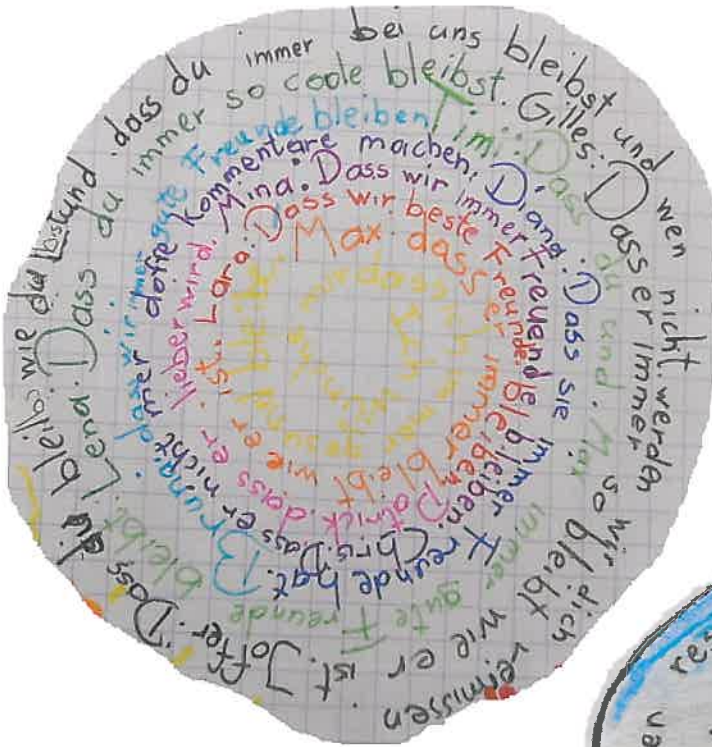 mir dass ich immer gesund
Max: dass er immer bleibt wie er ist.
Lara: Dass wir beste Freunde bleiben
Patrick. dass er lieber wird.
Mina: Dass wir immer Freuende bleiben.
Chris. Dass er nicht mer dofie Kommentare machen.
Diand: Dass sie immer Freunde hat.
Bruna: dass wir immer gute Freunde bleiben
Timi: Dass du und Max immer gute Freunde bleibt.
Lena: Dass du immer so coole bleibst.
Gilles: Dass er immer so bleibt wie er ist.
Joffer: Dass du bleibs wie du bist und dass du immer bei uns bleibst und wen nicht werden wir dich vermissen.